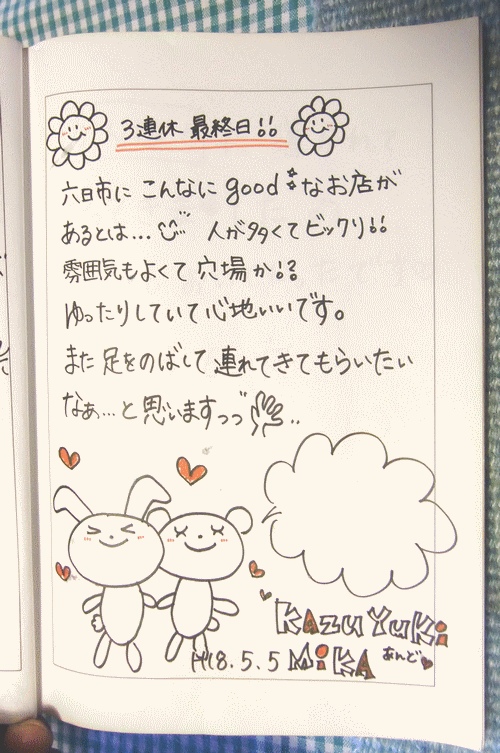 3連休 最終日!!
六日市に こんなに goodなお店が
あるとは... 人が多くてビックリ!!
雰囲気もよくて 穴場か!?
ゆったりしていて心地いいです。
また 足をのばして 連れてきてもらいたい
なぁ...と思いますっっ..
KAzuYuKi
あんど
H18.5.5 MiKA